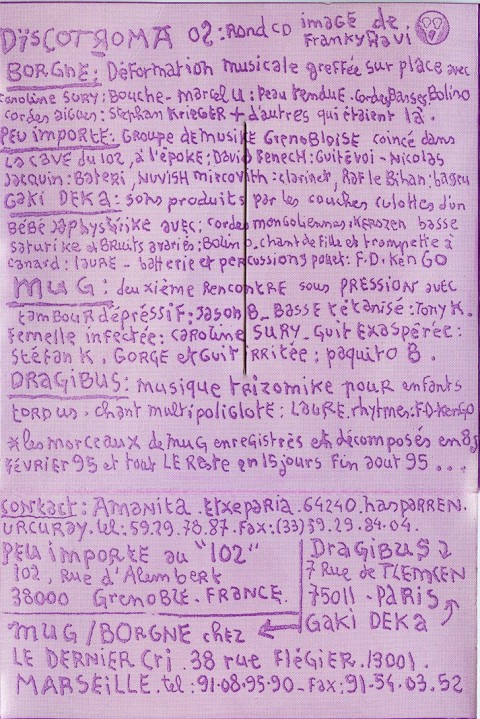 DisCOTROMA 02: Rond CD image de
FrankyRavi
BORGNE: Déformation musicale greffée sur place avec
Caroline SURY: Bouche - Marcel U: Peau tendue. Cordes Basses: Bolino
cordes aigues: Stephan KRIEGER + d'autres qui étaient là.
PEU IMPORTE: Groupe de musike GrenoBLOISE coincé dans
la cave du 102, à l'époke: David Fenech: Guit&voi - Nicolas
Jacquin: Bateri, NUVISH mircovith: clarinet, Raf le Bihan: baseu
Gaki DEKA: sons produits par les couches culottes d'un
BéBé japhystrike avec: cordes mongoliennes: KEROZEN basse
saturike et Bruits avariés: Bolino. chant de fille et trompette à
canard: LAURE - batterie et percussions pouet: F.D. Ken GO
MUG: deuxième Rencontre sous PRESSION avec
tamBOUR dépréssiF: Jason B_ BASSE tétanisé: Tony K.
Femelle infectée: CAROLINE SURY_ Guit Exaspérée:
Stéfan K. GORGE et Guit irritée: paquito B.
DRAGIBUS: musique trizomike pour enfants
tordus. chant multipoliglote: LAURE. rhytmes: F.D-KenGo
*les morceaux de mug enregistrés et décomposés en 8j
FéVRIER 95 et tout LE Reste en 15 jours Fin aout 95 ...
Contact: Amanita. Etxeparia. 64240. hasparren.
URCURAY. tel: 59.29.78.87. Fax: (33) 59.29.84.04.
PEU importe au "102"
102, Rue d'Alembert
38000 GrenoBLE. FRANCE.
DRAGIBUS 2
7 Rue de TLEMCEN
75011 - PARIS
GAKI DEKA
MUG / BORGNE chez
LE DERNIER Cri. 38 rue FLéGiER. 13001.
MARSEiLLE. tel: 91-08-95-90_ Fax: 91-54.03.52